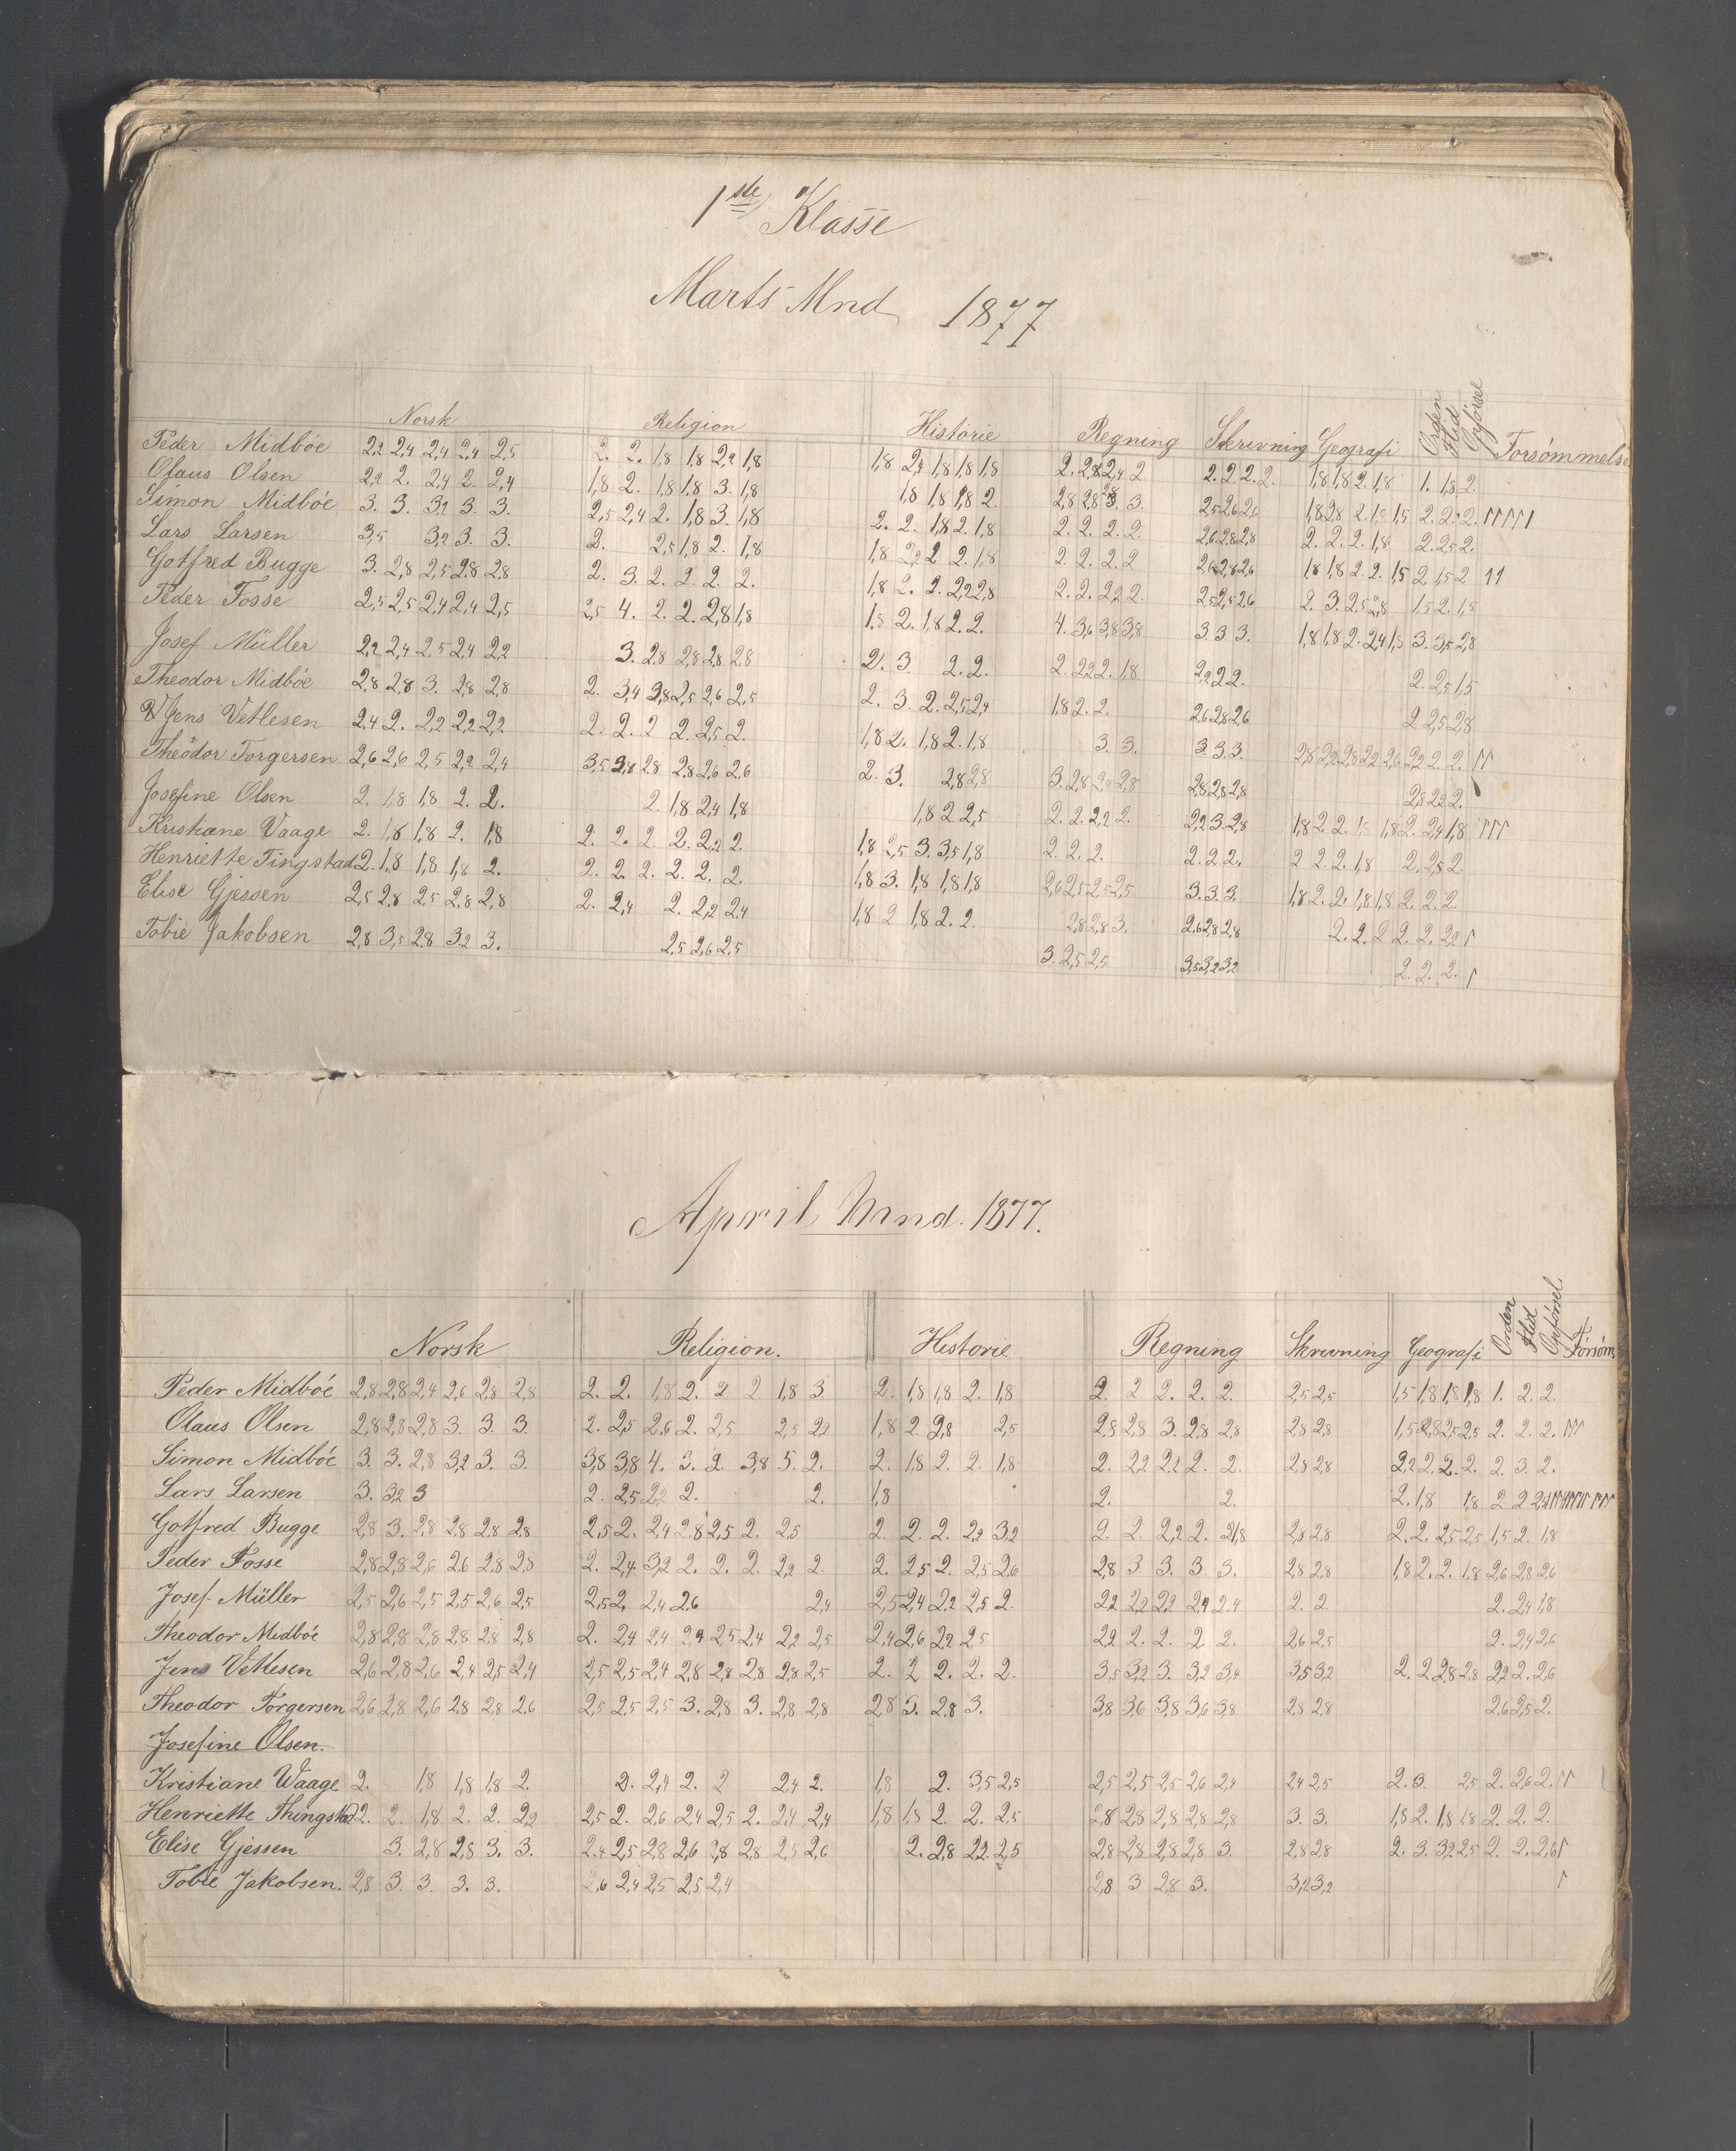 1ste Klasse
Marts Mnd 1877
Norsk Religion Historie Regning Skrivning Geografi Orden Flid Opførsel Forsømmelse
Peder Midbøe 2,2 2,4 2,4 2,4 2,5 2. 2. 1,8 1,8 2,2 1,8 1,8 2,4 1,8 1,8 1,8 2. 2,8 2,4 2 2. 2. 2. 2. 1,8 1,8 2. 1,8 1. 1,8 2.
Olaus Olsen 2,2 2. 2,4 2. 2,4 1,8 2. 1,8 1,8 3. 1,8 1,8 1,8 1,8 2. 2,8 2,8 3. 3. 2,5 2,6 2,6 1,8 2,8 2. 1,8 1,5 2. 2. 2. 11111
Simon Midbøe 3. 3. 3,2 3. 3. 2,5 2,4 2. 1,8 3. 1,8 2. 2. 1,8 2. 1,8 2. 2. 2. 2. 2,6 2,8 2,8 2. 2. 2. 1,8 2. 2,5 2.
Lars Larsen 3,5 3,2 3. 3. 2. 2,5 1,8 2. 1,8 1,8 2,2 2 2. 1,8 2. 2. 2. 2 2,6 2,8 2,6 1,8 1,8 2. 2. 1,5 2. 1,5 2. 11
Gotfred Bugge 3. 2,8 2,5 2,8 2,8 2. 3. 2. 2. 2. 2. 1,8 2. 2. 2,2 2,8 2. 2. 2,2 2. 2,5 2,5 2,6 2. 3. 2,5 2,8 1,5 2. 1,5
Peder Fosse 2,5 2,5 2,4 2,4 2,5 2,5 4. 2. 2. 2,8 1,8 1,8 2. 1,8 2. 2. 4. 3,6 3,8 3,8 3. 3 3. 1,8 1,8 2. 2,4 1,5 3. 3,5 2,8
Josef Müller 2,2 2,4 2,5 2,4 2,2 3. 2,8 2,8 2,8 2,8 2. 3 2. 2. 2. 2,2 2. 1,8 2,2 2 2. 2. 2,5 1,5
Theodor Midbøe 2,8 2,8 3. 2,8 2,8 2. 3,4 3,8 2,5 2,6 2,5 2. 3. 2. 2,5 2,4 1,8 2. 2. 2,6 2,8 2,6 2 2,5 2,8
Jens Vetlesen 2,4 2. 2,2 2,2 2,2 2. 2. 2 2. 2,5 2. 1,8 2. 1,8 2. 1,8 3. 3. 3. 3. 3. 2,8 2,2 2,8 2,2 2,6 2,2 2. 2. 11
Theodor Torgersen 2,6 2,6 2,5 2,2 2,4 3,5 3,8 2,8 2,8 2,6 2,6 2. 3. 2,8 2,8 3. 2,8 2,8 2,8 2,8 2,8 2,8 2,8 2,2 2.
Josefine Olsen 2. 1,8 1,8 2. 2. 2. 1,8 2,4 1,8 1,8 2 2,5 2. 2. 2,2 2. 2,2 3. 2,8 1,8 2. 2. 1,5 1,8 2. 2,4 1,8 111
Kristiane Vaage 2. 1,8 1,8 2. 1,8 2. 2. 2 2. 2,2 2. 1,8 2,5 3. 3,5 1,8 2. 2. 2. 2. 2. 2. 2 2. 2. 1,8 2. 2,8 2
Henriette Tingstad 2. 1,8 1,8 1,8 2. 2. 2. 2. 2. 2. 2. 1,8 3. 1,8 1,8 1,8 2,6 2,5 2,5 2,5 3. 3. 3. 1,8 2. 2. 1,8 1,8 2. 2. 2.
Elise Gjessen 2,5 2,8 2,5 2,8 2,8 2. 2,4 2. 2,2 2,4 1,8 2 1,8 2. 2. 2,8 2,8 3. 2,6 2,8 2,8 2. 2. 2 2. 2. 2,2 1
Tobie Jakobsen 2,8 3,5 2,8 3,2 3. 2,5 2,6 2,5 3. 2,5 2,5 3,5 3,2 3,2 2. 2. 2. 1
April Mnd. 1877.
Norsk Religion. Historie Regning Skrivning Geografi Orden Flid Opførsel Forsøm.
Peder Midbøe 2,8 2,8 2,4 2,6 2,8 2,8 2. 2. 1,8 2. 2 2. 1,8 3. 2. 1,8 1,8 2. 1,8 2. 2 2. 2. 2. 2,5 2,5 1,5 1,8 1,8 1,8 1. 2. 2.
Olaus Olsen 2,8 2,8 2,8 3. 3. 3. 2. 2,5 2,6 2. 2,5 2,5 2,2 1,8 2. 2,8 2,5 2,8 2,8 3. 2,8 2,8 2,8 2,8 1,5 2,8 2,5 2,5 2. 2. 2. 11
Simon Midbøe 3. 3. 2,8 3,2 3. 3. 3,8 3,8 4. 3. 2. 3,8 5. 2. 2. 1,8 2. 2. 1,8 2. 2,2 2,2 2. 2. 2,8 2,8 2,2 2. 2. 2. 2. 3. 2.
Lars Larsen 3. 3,2 3 2. 2,5 2,2 2. 2. 1,8 2. 2. 2. 1,8 1,8 2 2 2,4
Gotfred Bugge 2,8 3. 2,8 2,8 2,8 2,8 2,5 2. 2,4 2,8 2,5 2. 2,5 2. 2. 2. 2,2 3,2 2. 2. 2,2 2. 2,8 2,8 2,8 2. 2. 2,5 2,5 1,5 2. 1,8
Peder Fosse 2,8 2,8 2,6 2,6 2,8 2,8 2. 2,4 3,2 2. 2. 2. 2,2 2. 2. 2,5 2. 2,5 2,6 2,8 3 3. 3. 3. 2,8 2,8 1,8 2. 2. 1,8 2,6 2,8 2,6
Josef Müller 2,5 2,6 2,5 2,5 2,6 2,5 2,5 2. 2,4 2,6 2,4 2,5 2,4 2,2 2,5 2. 2,2 2,2 2,2 2,4 2,4 2. 2. 2. 2,4 1,8
Theodor Midbøe 2,8 2,8 2,8 2,8 2,8 2,8 2. 2,4 2,4 2,4 2,5 2,4 2,2 2,5 2,4 2,6 2,2 2,5 2,2 2. 2. 2. 2. 2,6 2,5 2. 2,4 2,6
Jens Vetlesen 2,6 2,8 2,6 2,4 2,5 2,4 2,5 2,5 2,4 2,8 2,8 2,8 2,8 2,5 2. 2 2. 2. 2. 3,5 3,2 3. 3,2 3,4 3,5 3,2 2. 2. 2,8 2,8 2,2 2. 2,6
Theodor Torgersen 2,6 2,8 2,6 2,8 2,8 2,6 2,5 2,5 2,5 3. 2,8 3. 2,8 2,8 2,8 3. 2,8 3. 3,8 3,6 3,8 3,6 3,8 2,8 2,8 2,6 2,5 2.
Josefine Olsen.
Kristiane Waage 2. 1,8 1,8 1,8 2. 2. 2,4 2. 2 2,4 2. 1,8 2. 3,5 2,5 2,5 2,5 2,5 2,6 2,4 2,4 2,5 2. 3. 2,5 2. 2,6 2. 11
Henriette Thingstad 2. 2. 1,8 2. 2. 2,2 2,5 2. 2,6 2,4 2,5 2. 2,4 2,4 1,8 1,8 2. 2. 2,5 2,8 2,8 2,8 2,8 2,8 3. 3. 1,8 2. 1,8 1,8 2. 2. 2.
Elise Gjessen 3. 2,8 2,8 3. 3. 2,4 2,5 2,8 2,6 2,8 2,8 2,5 2,6 2. 2,8 2,2 2,5 2,8 2,8 2,8 2,8 3. 2,8 2,8 2. 3. 3,2 2,5 2. 2. 2,6 1
Tobie Jakobsen. 2,8 3. 3. 3. 3. 2,6 2,4 2,5 2,5 2,4 2,8 3 2,8 3. 3,2 3,2 1